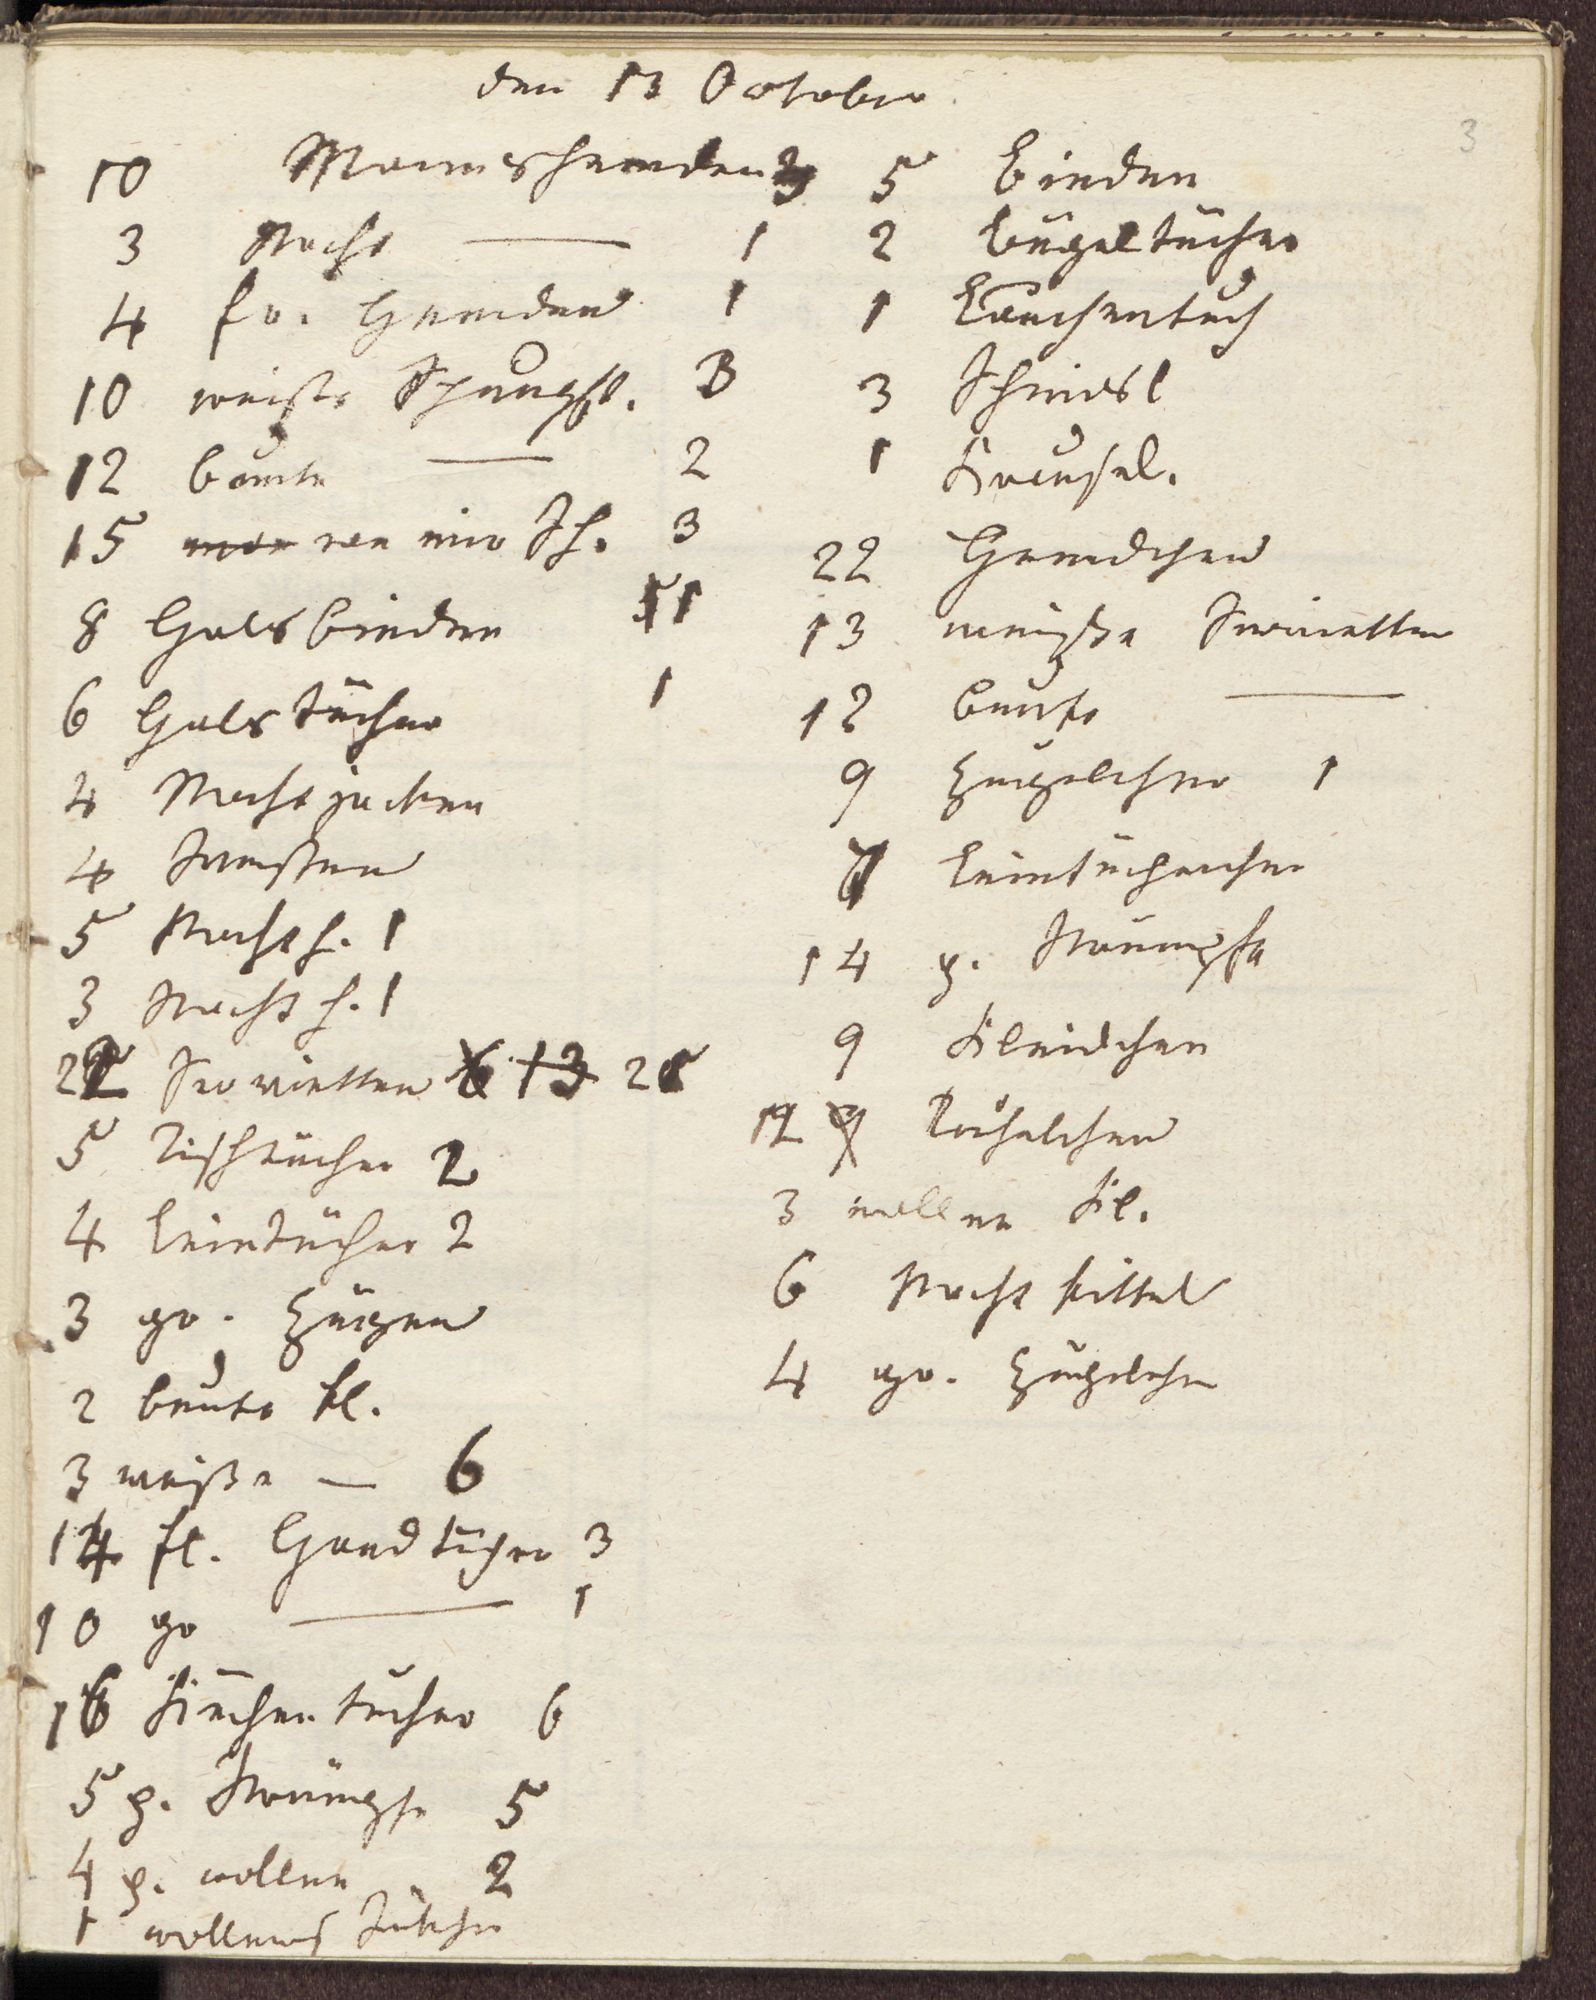 den 13 October
3
10 Mannshemden 3
3 Nacht — 1
4 fr. Hemden 1
10 weiße Schnupft. 3
12 bunte — 2
15 Sch. 3
8 Halsbinden 1
6 Halstücher 1
4 Nachtjacken
4 Westen
5 Nachth. 1
3 Nachth. 1
22 Servietten 6 13 21
5 Tischtücher 2
4 Leintücher 2
3 gr. Zügen
2 bunte kl.
3 weiße — 6
14 kl. Handtücher 3
10 gr — 1
16 Küchentücher 6
5 p. Strümpfe 5
4 p. wollene 2
1 wollenes
5 Binden
2 Bügeltücher
1
3
1
22 Hemdchen
13 weiße Servietten
12 bunte —
9 Zügelcher 1
7 Leintüchercher
14 p. Strümpfe
9 Kleidchen
12 9 Röckelchen
3 wollene Kl.
6 Nachtkittel
4 gr. Zügelcher